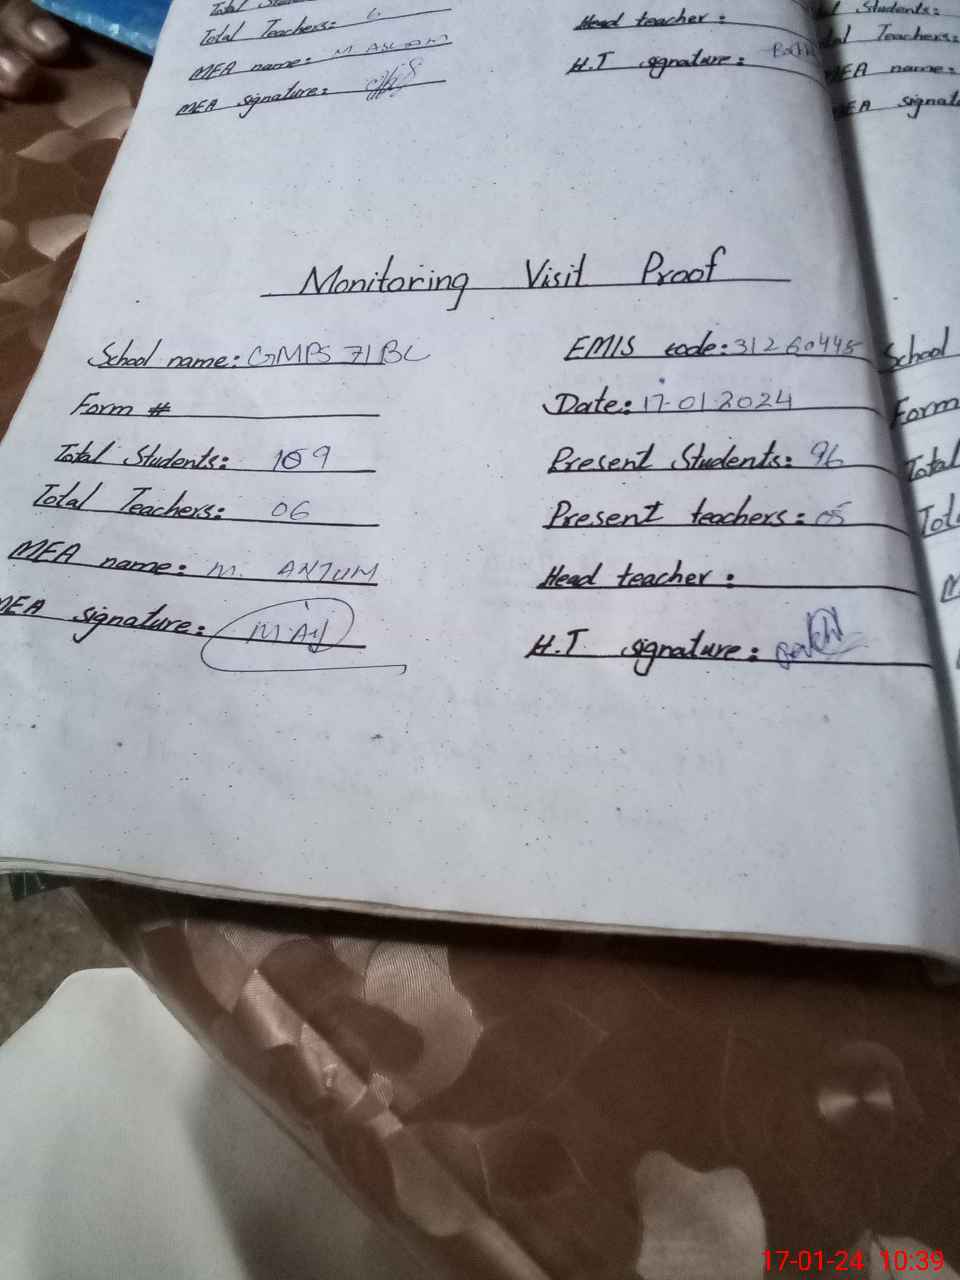 Total Teachers:
Head teacher:
Students:
MEA name: M ASLAM
H.T signature:
Teachers:
MEA signature:
MEA name:
MEA
Monitoring Visit Proof
School name: GMPS 71BC
EMIS code: 31260445
School
Form #
Date: 17-01-2024
Form
Total Students: 109
Present Students: 96
Total
Total Teachers: 06
Present teachers: 05
MEA name: M. ANJUM
Head teacher:
MEA signature:
H.T signature:
17-01-24 10:39